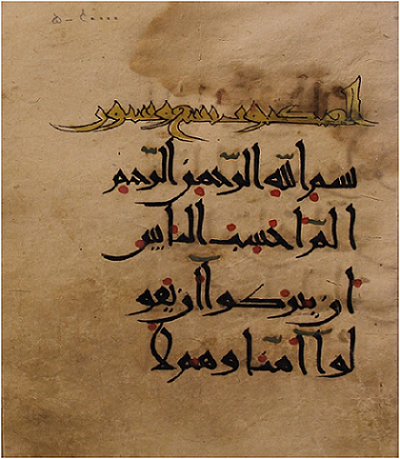 العنكبوت تسع وستون
بسم الله الرحمن الرحيم
الم احسب الناس
ان يتركوا ان يقو
لوا امنا وهم لا